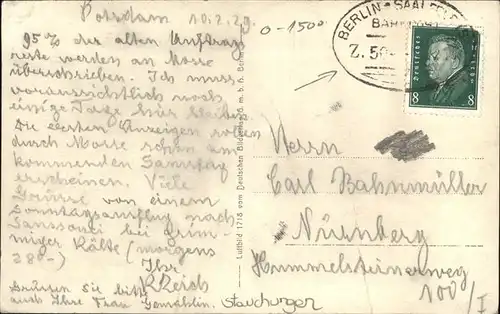 Potsdam 10.2.29.
95% der alten Auftrags
reste werden an Morre
überschrieben. Ich muss
voraussichtlich noch
einige Tage hier bleiben.
Die ersten Anzeigen sollen
durch Morre schon am
kommenden Samstag
erscheinen. Viele
Grüsse von einem
Sonntagsausflug nach
Sanssouci bei grim-
miger Kälte (morgens
28°-)
Ihr
K. Reich
Grüssen Sie bitte
auch Ihre Frau Gemahlin.
Luftbild 1718 vom Deutschen Bilddienst G. m. b. H.
0-1500
BERLIN - SAALFELD
BAHNPOST
Z. 50
Deutsches Reich
8 8
Herrn
Carl Bahnmüller
Nürnberg
Hummelsteinerweg
100/I
Stauchungen